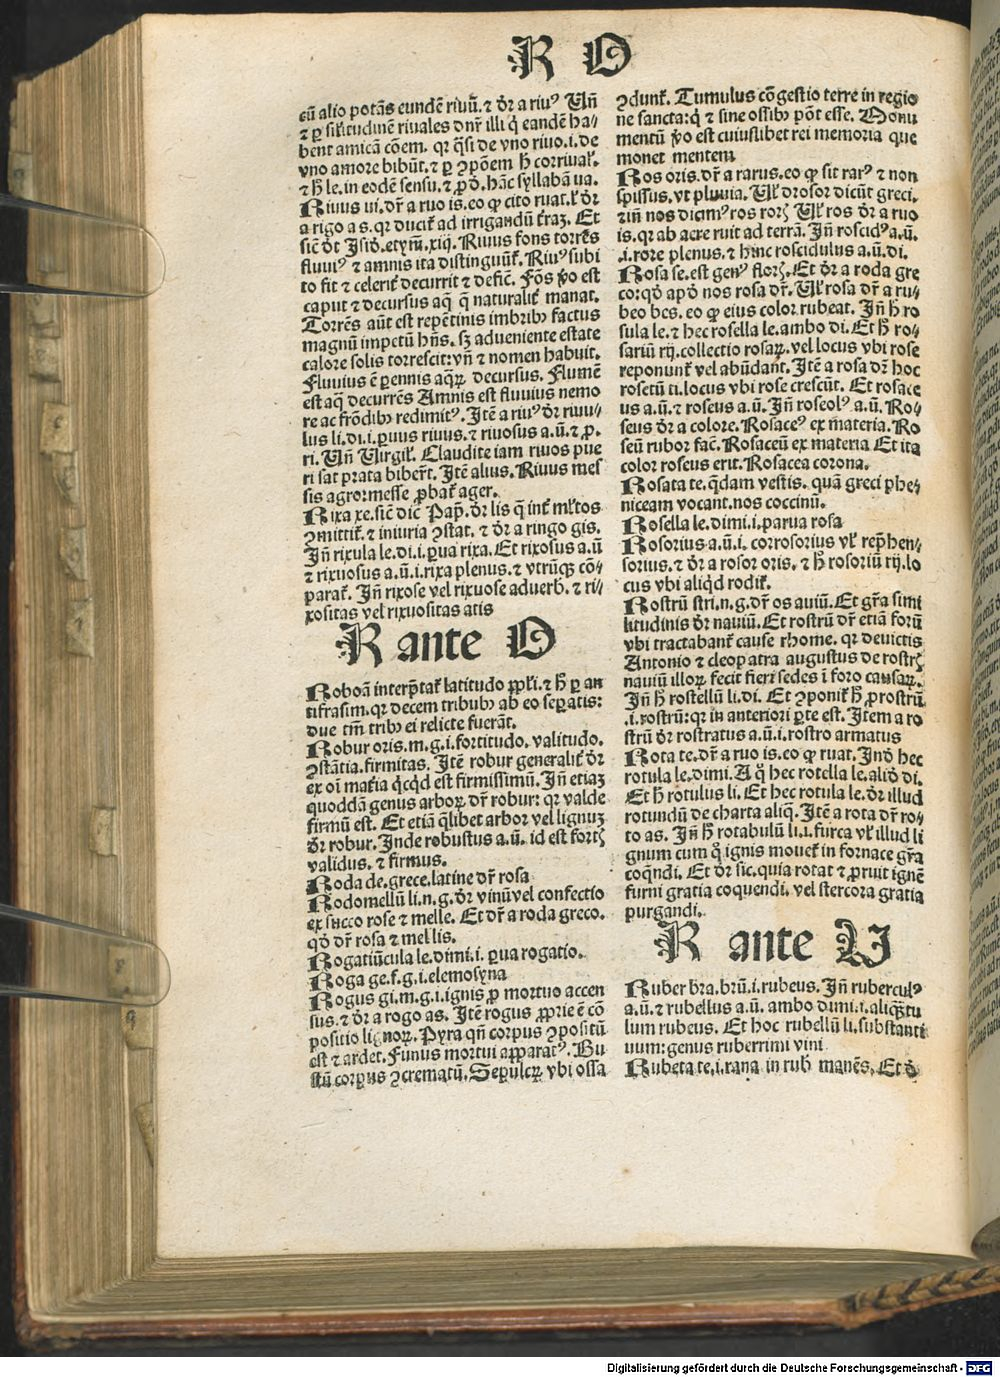 R O
cū alio potās eundē riuū. ⁊ dr̄ a riuꝰ Un̄
⁊ ꝑ sil'itudinē riuales dnr̄ illi q̇ eandē ha⸗
bent amicā cōem. qr q̄si de vno riuo. i. de
vno amore bibūt. ⁊ ꝑ ꝯpōem h̄ corriual'.
⁊ h̄ le. in eodē sensu. ⁊ ꝓd'. hāc syllabā ua.
Riuus ui. dr̄ a ruo is. eo ꝙ cito ruat. l' dr̄
a rigo a s. qr ducit' ad irrigandū t'raʒ. Et
sic̄ dt̄ Isid'. etym̄. xiij. Riuus fons torrēs
fluuiꝰ ⁊ amnis ita distinguūt'. Riuꝰ subi
to fit ⁊ celerit' decurrit ⁊ defic̄. Fōs ꝟo est
caput ⁊ decursus aq̄ q̄ naturalit' manat.
Torrēs aūt est repētinis imbribꝰ factus
magnū impetū hn̄s. sʒ adueniente estate
calore solis torrescit: vn̄ ⁊ nomen habuit.
Fluuius ē ꝑennis aqꝝ decursus. Flumē
est aq̄ decurrēs Amnis est fluuius nemo
re ac frōdibꝰ redimitꝰ. Itē a riuꝰ dr̄ riuu⸗
lus li. di. i. ꝑuus riuus. ⁊ riuosus a. ū. ⁊ ꝓ.
ri. Un̄ Uirgil'. Claudite iam riuos pue
ri sat prata biber̄t. Itē alius. Riuus mes
sis agror: messe ꝓbat' ager.
Rixa xe. sic̄ dic̄ Pap̄. dr̄ lis q̄ int' ml'tos
ꝯmittit'. ⁊ iniuria ꝯstat. ⁊ dr̄ a ringo gis.
In̄ rixula le. di. i. ꝑua rixa. Et rixosus a. ū
⁊ rixuosus a. ū. i. rixa plenus. ⁊ vtrūqꝫ cō⸗
parat'. In̄ rixose vel rixuose aduerb. ⁊ ri⸗
xositas vel rixuositas atis
R ante O
Roboā interp̄tat' latitudo ppl'i. ⁊ h̄ ꝑ an
tifrasim. qr decem tribubꝰ ab eo sepatis:
due tm̄ tribꝰ ei relicte fuerāt.
Robur oris. m. g. i. fortitudo. valitudo.
ꝯstātia. firmitas. Itē robur generalit' dr̄
ex oī mat'ia q̇cq̇d est firmissimū. In̄ etiaʒ
quoddā genus arboꝝ dr̄ robur: qr valde
firmū est. Et etiā q̄libet arbor vel lignuʒ
dr̄ robur. Inde robustus a. ū. id est fortꝭ
validus. ⁊ firmus.
Roda de. grece. latine dr̄ rosa
Rodomellū li. n. g. dr̄ vinū vel confectio
ex succo rose ⁊ melle. Et dr̄ a roda greco.
qd' dr̄ rosa ⁊ mel lis.
Rogatiūcula le. dimi. i. ꝑua rogatio.
Roga ge. f. g. i. elemosyna
Rogus gi. m. g. i. ignis ꝓ mortuo accen
sus. ⁊ dr̄ a rogo as. Itē rogus ꝓprie ē cō
positio lignoꝝ. Pyra qn̄ corpus ꝯpositū
est ⁊ ardet. Funus mortui apparatꝰ. Bu
stū corpus ꝯcrematū. Sepulcꝝ vbi ossa
ꝯdunt'. Tumulus cōgestio terre in regio
ne sancta: q̇ ⁊ sine ossibꝰ pōt esse. Monu
mentū ꝟo est cuiuslibet rei memoria que
monet mentem
Ros oris. dr̄ a rarus. eo ꝙ sit rarꝰ ⁊ non
spissus. vt pluuia. Ul' drosor dicūt greci.
⁊ in̄ nos dicimꝰ ros rorꝭ Ul' ros dr̄ a ruo
is. qr ab aere ruit ad terrā. In̄ roscidꝰ a. ū.
.i. rore plenus. ⁊ hinc roscidulus a. ū. di.
Rosa se. est genꝰ florꝭ. Et dr̄ a roda gre
co: qd' apd' nos rosa dr̄. Ul' rosa dr̄ a ru⸗
beo bes. eo ꝙ eius color rubeat. In̄ h̄ ro
sula le. ⁊ hec rosella le. ambo di. Et h̄ ro⸗
sariū rij. collectio rosaꝝ. vel locus vbi rose
reponunt' vel abūdant. Itē a rosa dr̄ hoc
rosetū ti. locus vbi rose crescūt. Et rosace
us a. ū. ⁊ roseus a. ū. In̄ roseolꝰ a. ū. Ro⸗
seus dr̄ a colore. Rosaceꝰ ex materia. Ro
seū rubor fac̄. Rosaceū ex materia Et ita
color roseus erit. Rosacea corona.
Rosata te. q̄dam vestis. quā greci phe⸗
niceam vocant. nos coccinū.
Rosella le. dimi. i. parua rosa
Rosorius a. ū. i. corrosorius vl' rep̄hen⸗
sorius. ⁊ dr̄ a rosor oris. ⁊ h̄ rosoriū rij. lo
cus vbi aliqd rodit'.
Rostrū stri. n. g. dr̄ os auiū. Et gr̄a simi
litudinis dr̄ nauiū. Et rostrū dr̄ etiā forū
vbi tractabant' cause rhome. qr deuictis
Antonio ⁊ cleopatra augustus de rostrꝭ
nauiū illoꝝ fecit fieri sedes ī foro causaꝝ.
In̄ h̄ rostellū li. di. Et ꝯponit' h̄ ꝓrostrū
.i. rostrū: qr in anteriori ꝑte est. Item a ro
strū dr̄ rostratus a. ū. i. rostro armatus
Rota te. dr̄ a ruo is. eo ꝙ ruat. Ind' hec
rotula le. dimi. A q̄ hec rotella le. alid' di.
Et h̄ rotulus li. Et hec rotula le. dr̄ illud
rotundū de charta aliq̄. Itē a rota dr̄ ro⸗
to as. In̄ h̄ rotabulū li. i. furca vl' illud li
gnum cum q̊ ignis mouet' in fornace gr̄a
coqn̄di. Et dr̄ sic. quia rotat ⁊ ꝓruit ignē
furni gratia coquendi. vel stercora gratia
purgandi.
R ante U
Ruber bra. brū. i. rubeus. In̄ ruberculꝰ
a. ū. ⁊ rubellus a. ū. ambo dimi. i. aliqꝫtu
lum rubeus. Et hoc rubellū li. substanti
uum: genus ruberrimi vini
Rubeta te. i. rana in rub' manēs. Et d'
Digitalisierung gefördert durch die Deutsche Forschungsgemeinschaft - DFG